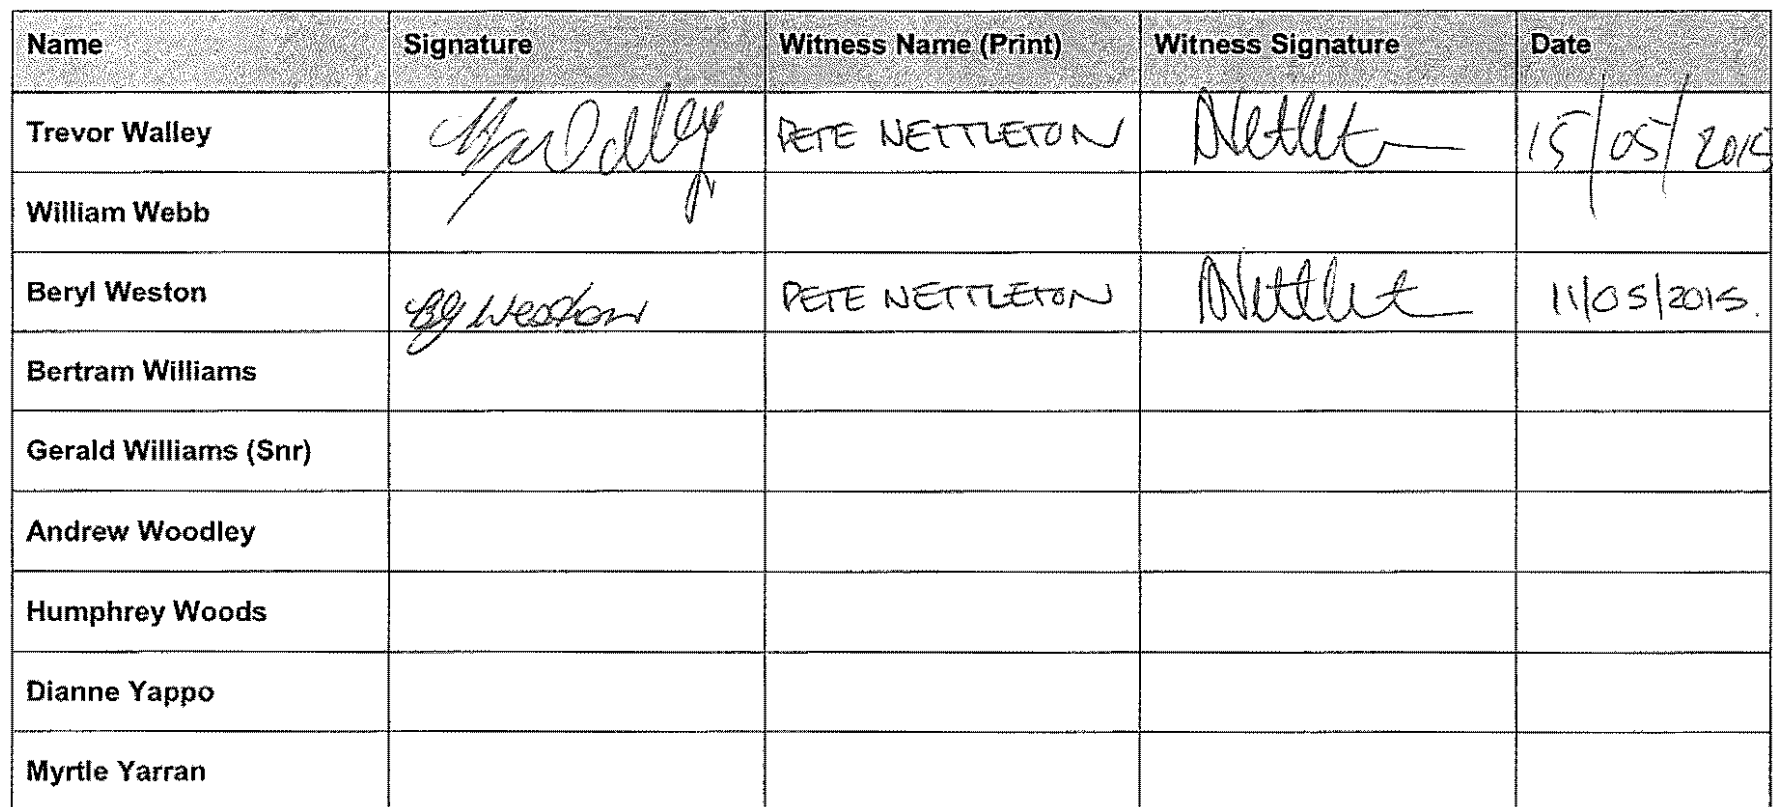 Name Signature Witness Name (Print) Witness Signature Date
Trevor Walley PETE NETTLETON 15/05/2015
William Webb
Beryl Weston BJ Weston PETE NETTLETON 11/05/2015.
Bertram Williams
Gerald Williams (Snr)
Andrew Woodley
Humphrey Woods
Dianne Yappo
Myrtle Yarran